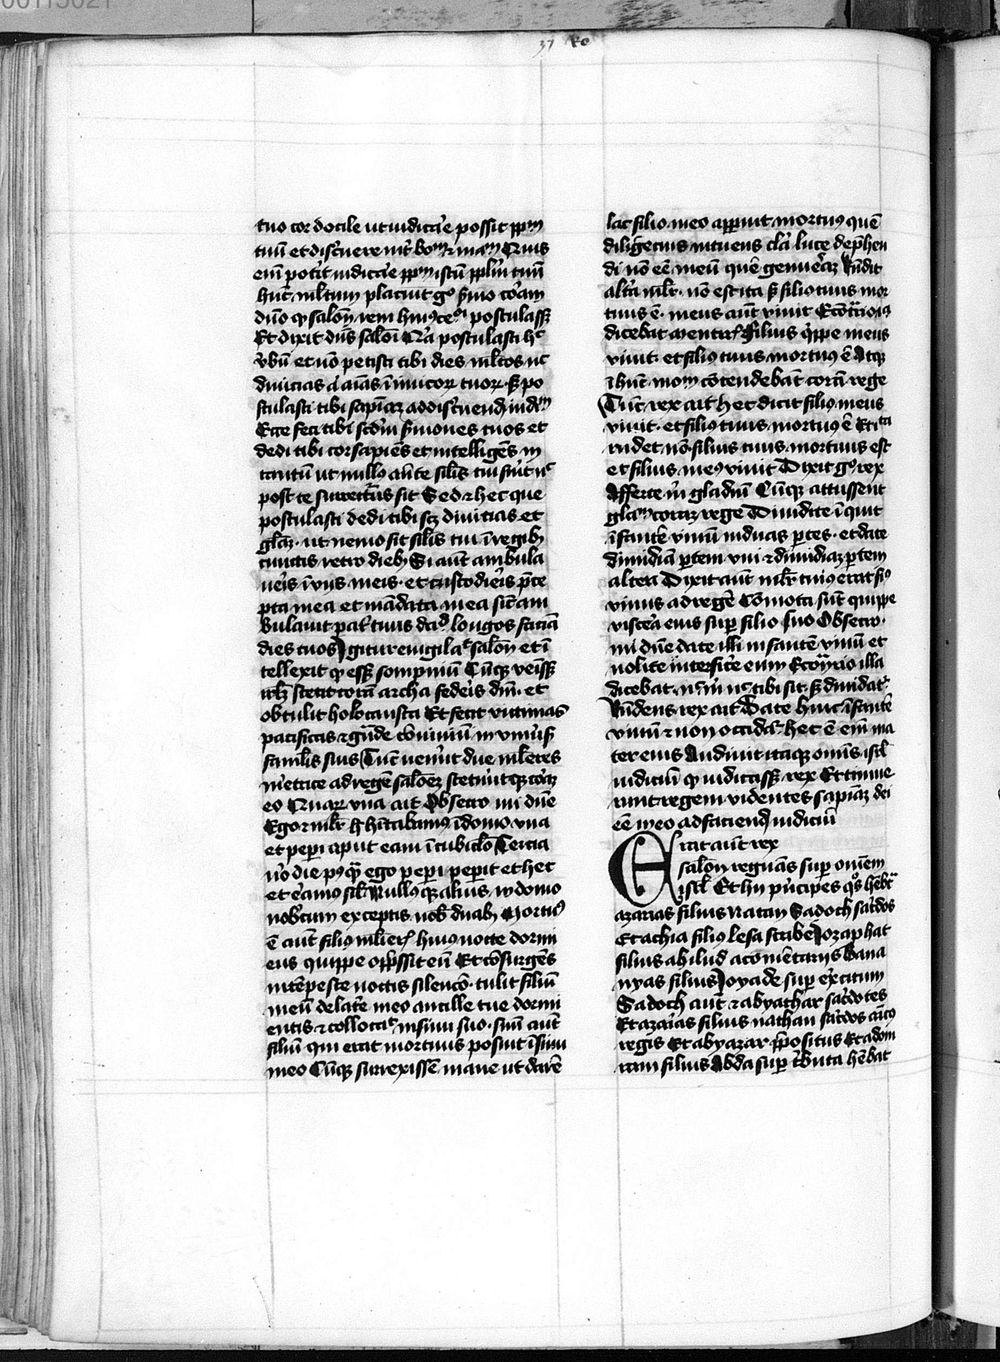 00113021
37 Re
tuo cor docile ut iudicar̄e possit pp̄m
tuū et disc̄nere int̄ bonū ⁊ malū Quis
enī pot̄it iudicar̄e pp̄m istū pp̄lm̄ tuū
hūc m̄ltum placuit g̊ s̄mo corā
dn̄o ꝙ salon̄ rem huiꝰceōi postulass̄
Et dixit dn̄s salōi Qr̄a postulasti h̊
v̄bū et nō petisti tibi dies m̄ltos nc̄
diuicias a͛ aīas īimicoꝝ tuoꝝ s̄ po
stulasti tibi sapiāꝫ ad disc̄nend̄ iudm̄
Ecce feci tibi scd̄m s̄mones tuos et
dedi tibi cor sapiēs et intelligēs in
tantū ut nullꝰ ante silīs tui fūt nc̄
post te surrectūs sit Sed ⁊ hec que
postulasti dedi tibi scꝫ diuicias et
glāꝫ · ut nemo sit silīs tui ī regibꝫ
cunctis retro diebꝫ Si aūt ambula
ueīs ī vijs meis · et custodieīs p̄ce
pta mea et mādata mea sic̄ am
bulauit pat̄ tuus dd̄ longos faciā
dies tuos Igitur euigilaᵗ salon̄ et ī
tellexit ꝙ ess̄ sompniū Cūqꝫ veīss̄
irlꝫ stetit corā archa federīs dn̄i · et
obtulit holocausta Et fecit victimas
pacificas ⁊ gn̄de cōuiuiū in vniūs̄
famlīs suis Tūc venēt due mlīeres
m̄etrice ad regē saloēꝫ steteūtqꝫ corā
eo Quaꝝ vna ait Obsecro mi dn̄e
Ego ⁊ mlīr h̄ hītabamꝰ ī domo vna
et pepi̅ aput eam ī cubiclō Tercia
v̊o die pꝰqꝫ ego pepi̅ peperit et hec
et er̄amꝰ sil̄ Nullusqꝫ alius in domo
nobc̄um exceptis nob̄ duabꝫ Mortuꝰ
ē aūt filiꝰ mlīeis̄ huiꝰ nocte dormi
ens quippe opp̄ssit eū Et cōsurgēs
intēpeste noctis silencō · tulit filiū
meū de latēe meo ancille tue dormi
entis ⁊ collocaᵗ in sinu suo · suū aūt
filiū qui erat mortuus posuit ī sinu
meo Cūqꝫ surrexissē mane ut darē
lac filio meo apparuit mortuꝰ quē
diligecius intuens clār luce dep̄hen
di nō eē meū quē genuer̄aꝫ Rn̄dit
altā mlīr · nō est ita s̄ filiꝰ tuus mor
tuus ē · meus aūt viuit Econt̄rioꝰ
dicebat mentiŕ filius qͥppe meus
viuit · et filiꝰ tuus mortuꝰ ē Atqꝫ
ī hūc mom̄ cōtendebāt corā rege
Tūc rex ait hec dicit filiꝰ meus
viuit · et filiꝰ tuus mortuꝰ ē Et ita
rn̄det nō · filius tuus mortuus est
et filius meꝰ viuit Dixit g̊ rex
Afferte m̄ gladiū Cūqꝫ attulissent
gla͛m coraꝫ rege Diuidite īquit
īfantē viuū in duas p̄tes · et date
dimidiā p̄tem vni ⁊ dimidiāꝫ p̄tem
altera Dixit aūt mlīr cuiꝰ erat fiꝰ
viuus ad regē Cōmota sūt quippe
viscēa eius suꝑ filio suo Obsecro ·
mi dn̄e date illi infantē viuū et
nolite interficēe eum Econ̄rio illa
dicebat · n̄ m̄ nc̄ tibi sit · s̄ diuidaᵗ ·
Rn̄dens rex ait Date huic īfantē
viuū ⁊ non occidaᵗ hec ē enī ma
ter eius Audiuit itaqꝫ omīs isrl̄
iudiciū ꝙ iudicass̄ rex Et timue
runt regem videntes sapiāꝫ dei
eē ī eo ad faciend̄ iudiciū
Erat aūt rex
salōn regnās suꝑ omēm
isrl̄ Et hii pͥncipes qͦs hēbat
azarias filius Natan Sadoch sac̄dos
Et achia filiꝰ sesa scribe Iozaphat
filius ahilud a comētarijs Bana
nyas filius Ioyade suꝑ ex̄citum
Sadoch aūt ⁊ abyathar sac̄dotes
Et azarias filius nathan sac̄dos amicꝰ
regis Et abyazar p̄positus Et adom
ram filius Abda suꝑ t̄buta hēbat